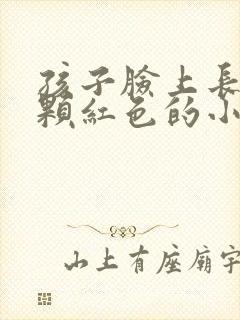 孩子臉上長
顆紅色的小
山上有座廟宇